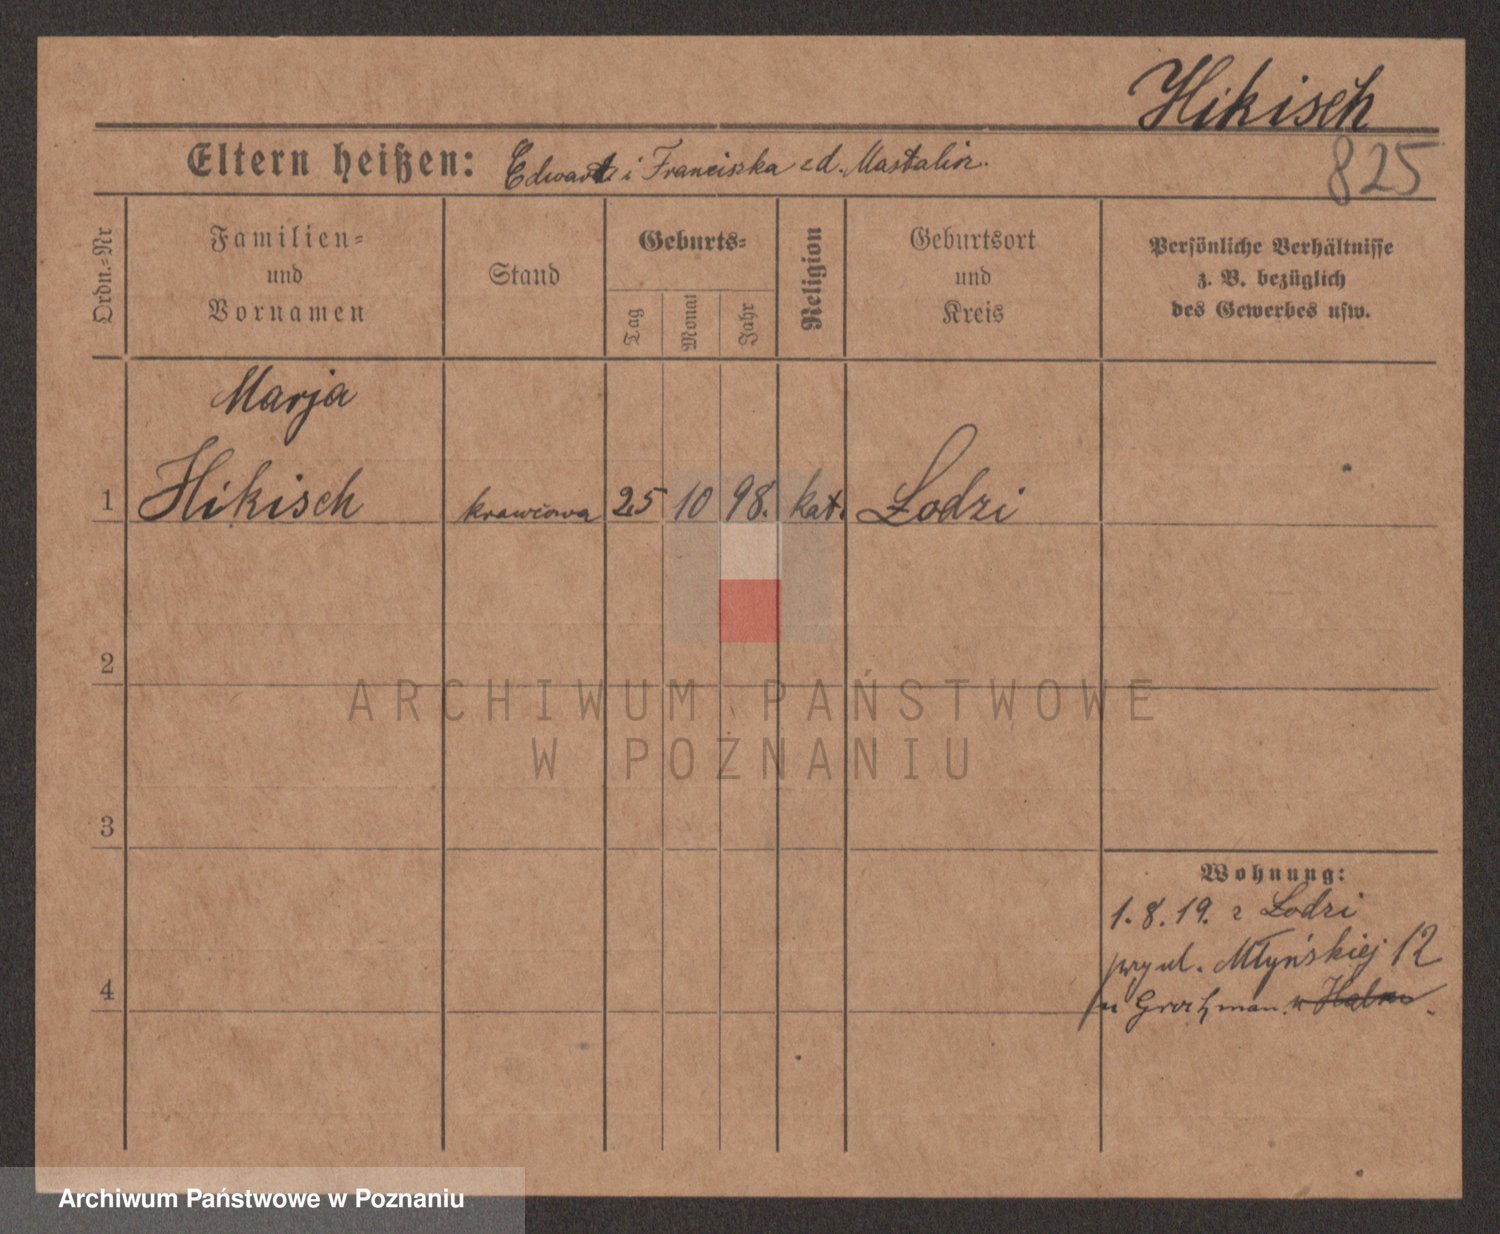 Hikisch
825
Eltern heißen: Edward i Franciszka zd. Mastalirz.
Ordn.=Nr
Familien=
und
Vornamen
Stand
Geburts=
Tag
Monat
Jahr
Religion
Geburtsort
und
Kreis
Persönliche Verhältnisse
z. B. bezüglich
des Gewerbes usw.
Marja
1 Hikisch krawcowa 25 10 98. kat. Łodzi
2
3
4
Wohnung:
1.8.19. z Łodzi
przy ul. Młyńskiej 12
u Grochman.
ARCHIWUM PAŃSTWOWE
W POZNANIU
Archiwum Państwowe w Poznaniu